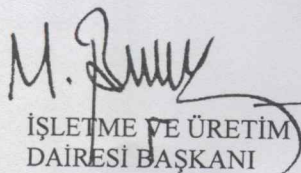 İŞLETME VE ÜRETİM
DAİRESİ BAŞKANI